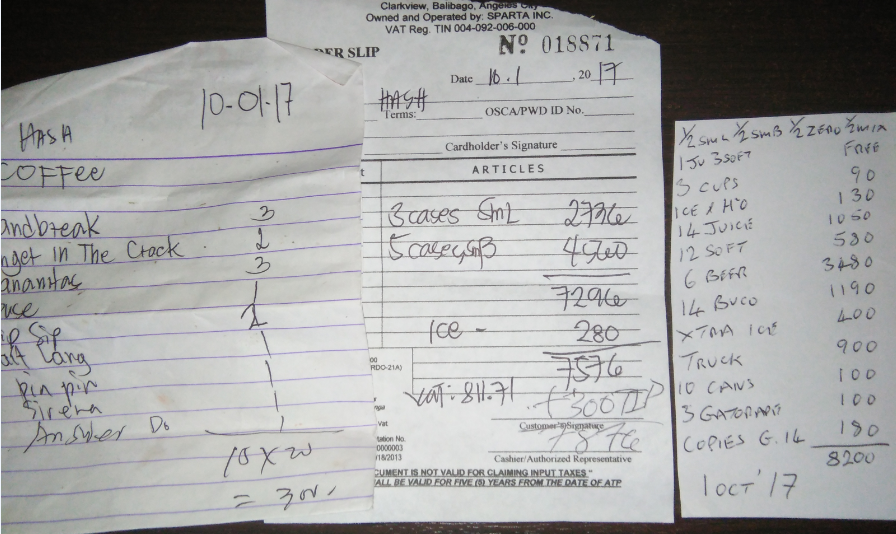 HASH
10-01-17
COFFee
andbreak 3
nget in The Crack 2
ananitas 3
use 1
Sip
art Lang 1
pin pin 1
Sirena 1
Answer Do 1
15 X 20
= 300
Clarkview, Balibago, Angeles City
Owned and Operated by: SPARTA INC.
VAT Reg. TIN 004-092-006-000
DER SLIP Nº 018871
Date 10.1, 2017
HASH
Terms: OSCA/PWD ID No.
Cardholder's Signature
t ARTICLES
3 cases SmL 2736
5 cases SmB 4560
7296
ICe - 280
00
RDO-21A)
7576
VAT: 811.71
+ 300 TIP
Vat
Customer's Signature
7876
tation No.
0000003
/18/2013
Cashier/Authorized Representative
CUMENT IS NOT VALID FOR CLAIMING INPUT TAXES "
ALL BE VALID FOR FIVE (5) YEARS FROM THE DATE OF ATP
1/2 SmL 1/2 SmB 1/2 ZERO 1/2 MIX
1 JU 3 SOFT FREE
3 CUPS 90
ICE & H2O 130
14 JUICE 1050
12 SOFT 580
6 BEER 3480
14 BUCO 1190
XTRA ICE 400
TRUCK 900
10 CANS 100
3 GATORADE 100
COPIES G.14 180
8200
1 OCT '17